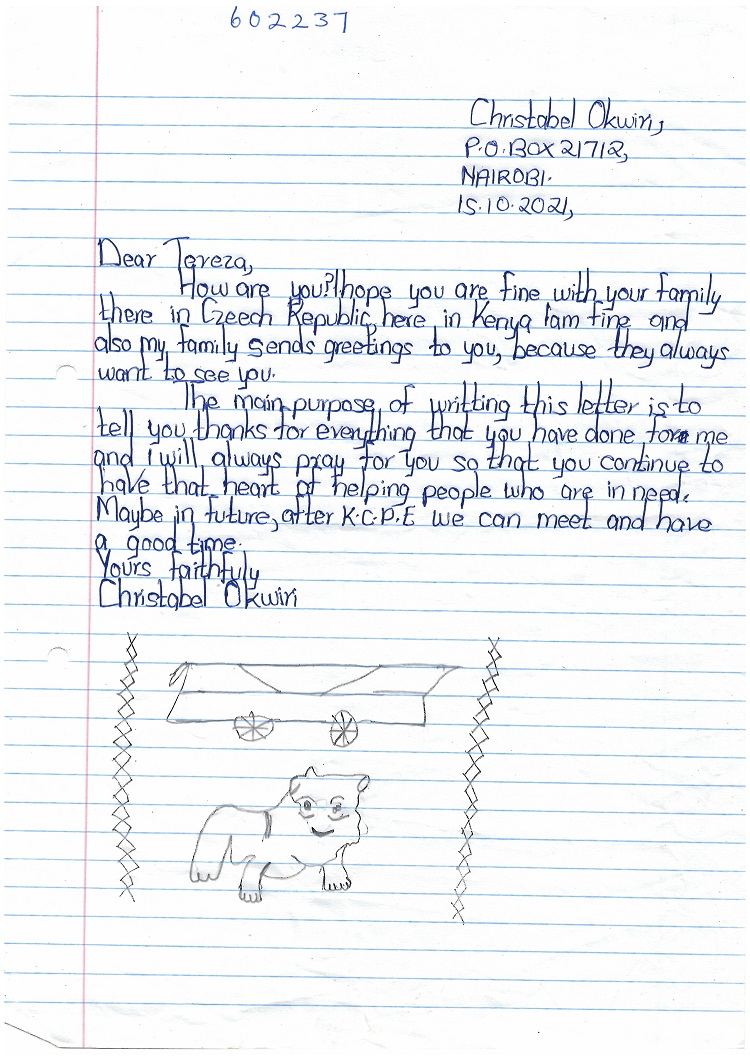 602237
Christabel Okwiri,
P.O.BOX 21712,
NAIROBI.
15.10.2021,
Dear Tereza,
How are you? I hope you are fine with your family
there in Czeech Republic, here in Kenya Iam fine and
also my family sends greetings to you, because they always
want to see you.
The main purpose of writting this letter is to
tell you thanks for everything that you have done for me
and i will always pray for you so that you continue to
have that heart of helping people who are in need.
Maybe in future, after K.C.P.E we can meet and have
a good time.
Yours faithfuly
Christabel Okwiri